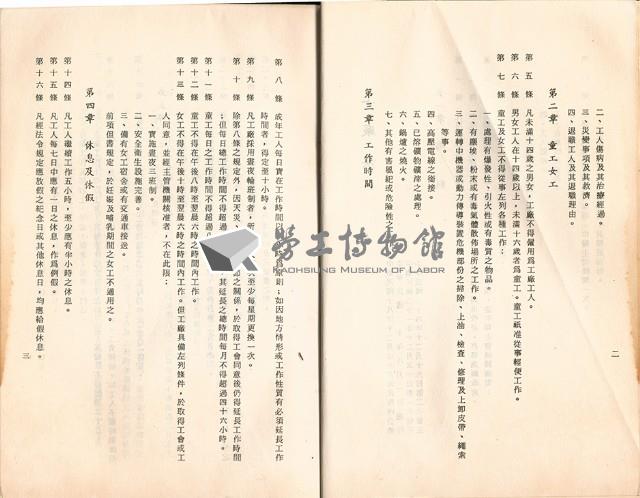 二、工人傷病及其治療經過。
三、災變事項及其救濟。
四、退職工人及其退職理由。
第二章 童工女工
第五條 凡未滿十四歲之男女,工廠不得僱用爲工廠工人。
第六條 男女工人在十四歲以上,未滿十六歲者爲童工。童工祇准從事輕便工作。
第七條 童工及女工不得從事左列各種工作:
一、處理有爆發性、引火性或有毒質之物品。
二、有塵埃、粉末或有毒氣體散佈場所之工作。
三、運轉中機器或動力傳導裝置危險部份之掃除、上油、檢查、修理及上卸皮帶、繩索
等事。
四、高壓電線之銜接。
五、已溶礦物或礦滓之處理。
六、鍋爐之燒火。
七、其他有害風紀或危險性之
第三章 工作時間
二
第八條 成年工人每日實在工作時間以 則;如因地方情形或工作性質有必須延長工作
時間者,得定至十小時。
第九條 凡工廠採用晝夜輪班制者,所 至少每星期更換一次。
第十條 除第八條之規定外,因天災、 之關係,於取得工會同意後仍得延長工作時間
;但每日總工作時間不得超過 其延長之總時間每月不得超過四十六小時。
第十一條 童工每日之工作時間不得超過
第十二條 童工不得在午後八時至翌晨六時之時間內工作。
第十三條 女工不得在午後十時至翌晨六時之時間內工作。但工廠具備左列條件,於取得工會或工
人同意,並經主管機關核准者,不在此限:
一、實施晝夜三班制。
二、安全衛生設施完善。
三、備有女工宿舍或有交通車接送。
前項但書規定,於妊娠及哺乳期間之女工不適用之。
第四章 休息及休假
第十四條 凡工人繼續工作五小時,至少應有半小時之休息。
第十五條 凡工人每七日中應有一日之休息,作爲例假。
第十六條 凡經法令規定應放假之紀念日或其他休息日,均應給假休息。
三
勞工博物館
KAOHSIUNG MUSEUM OF LABOR